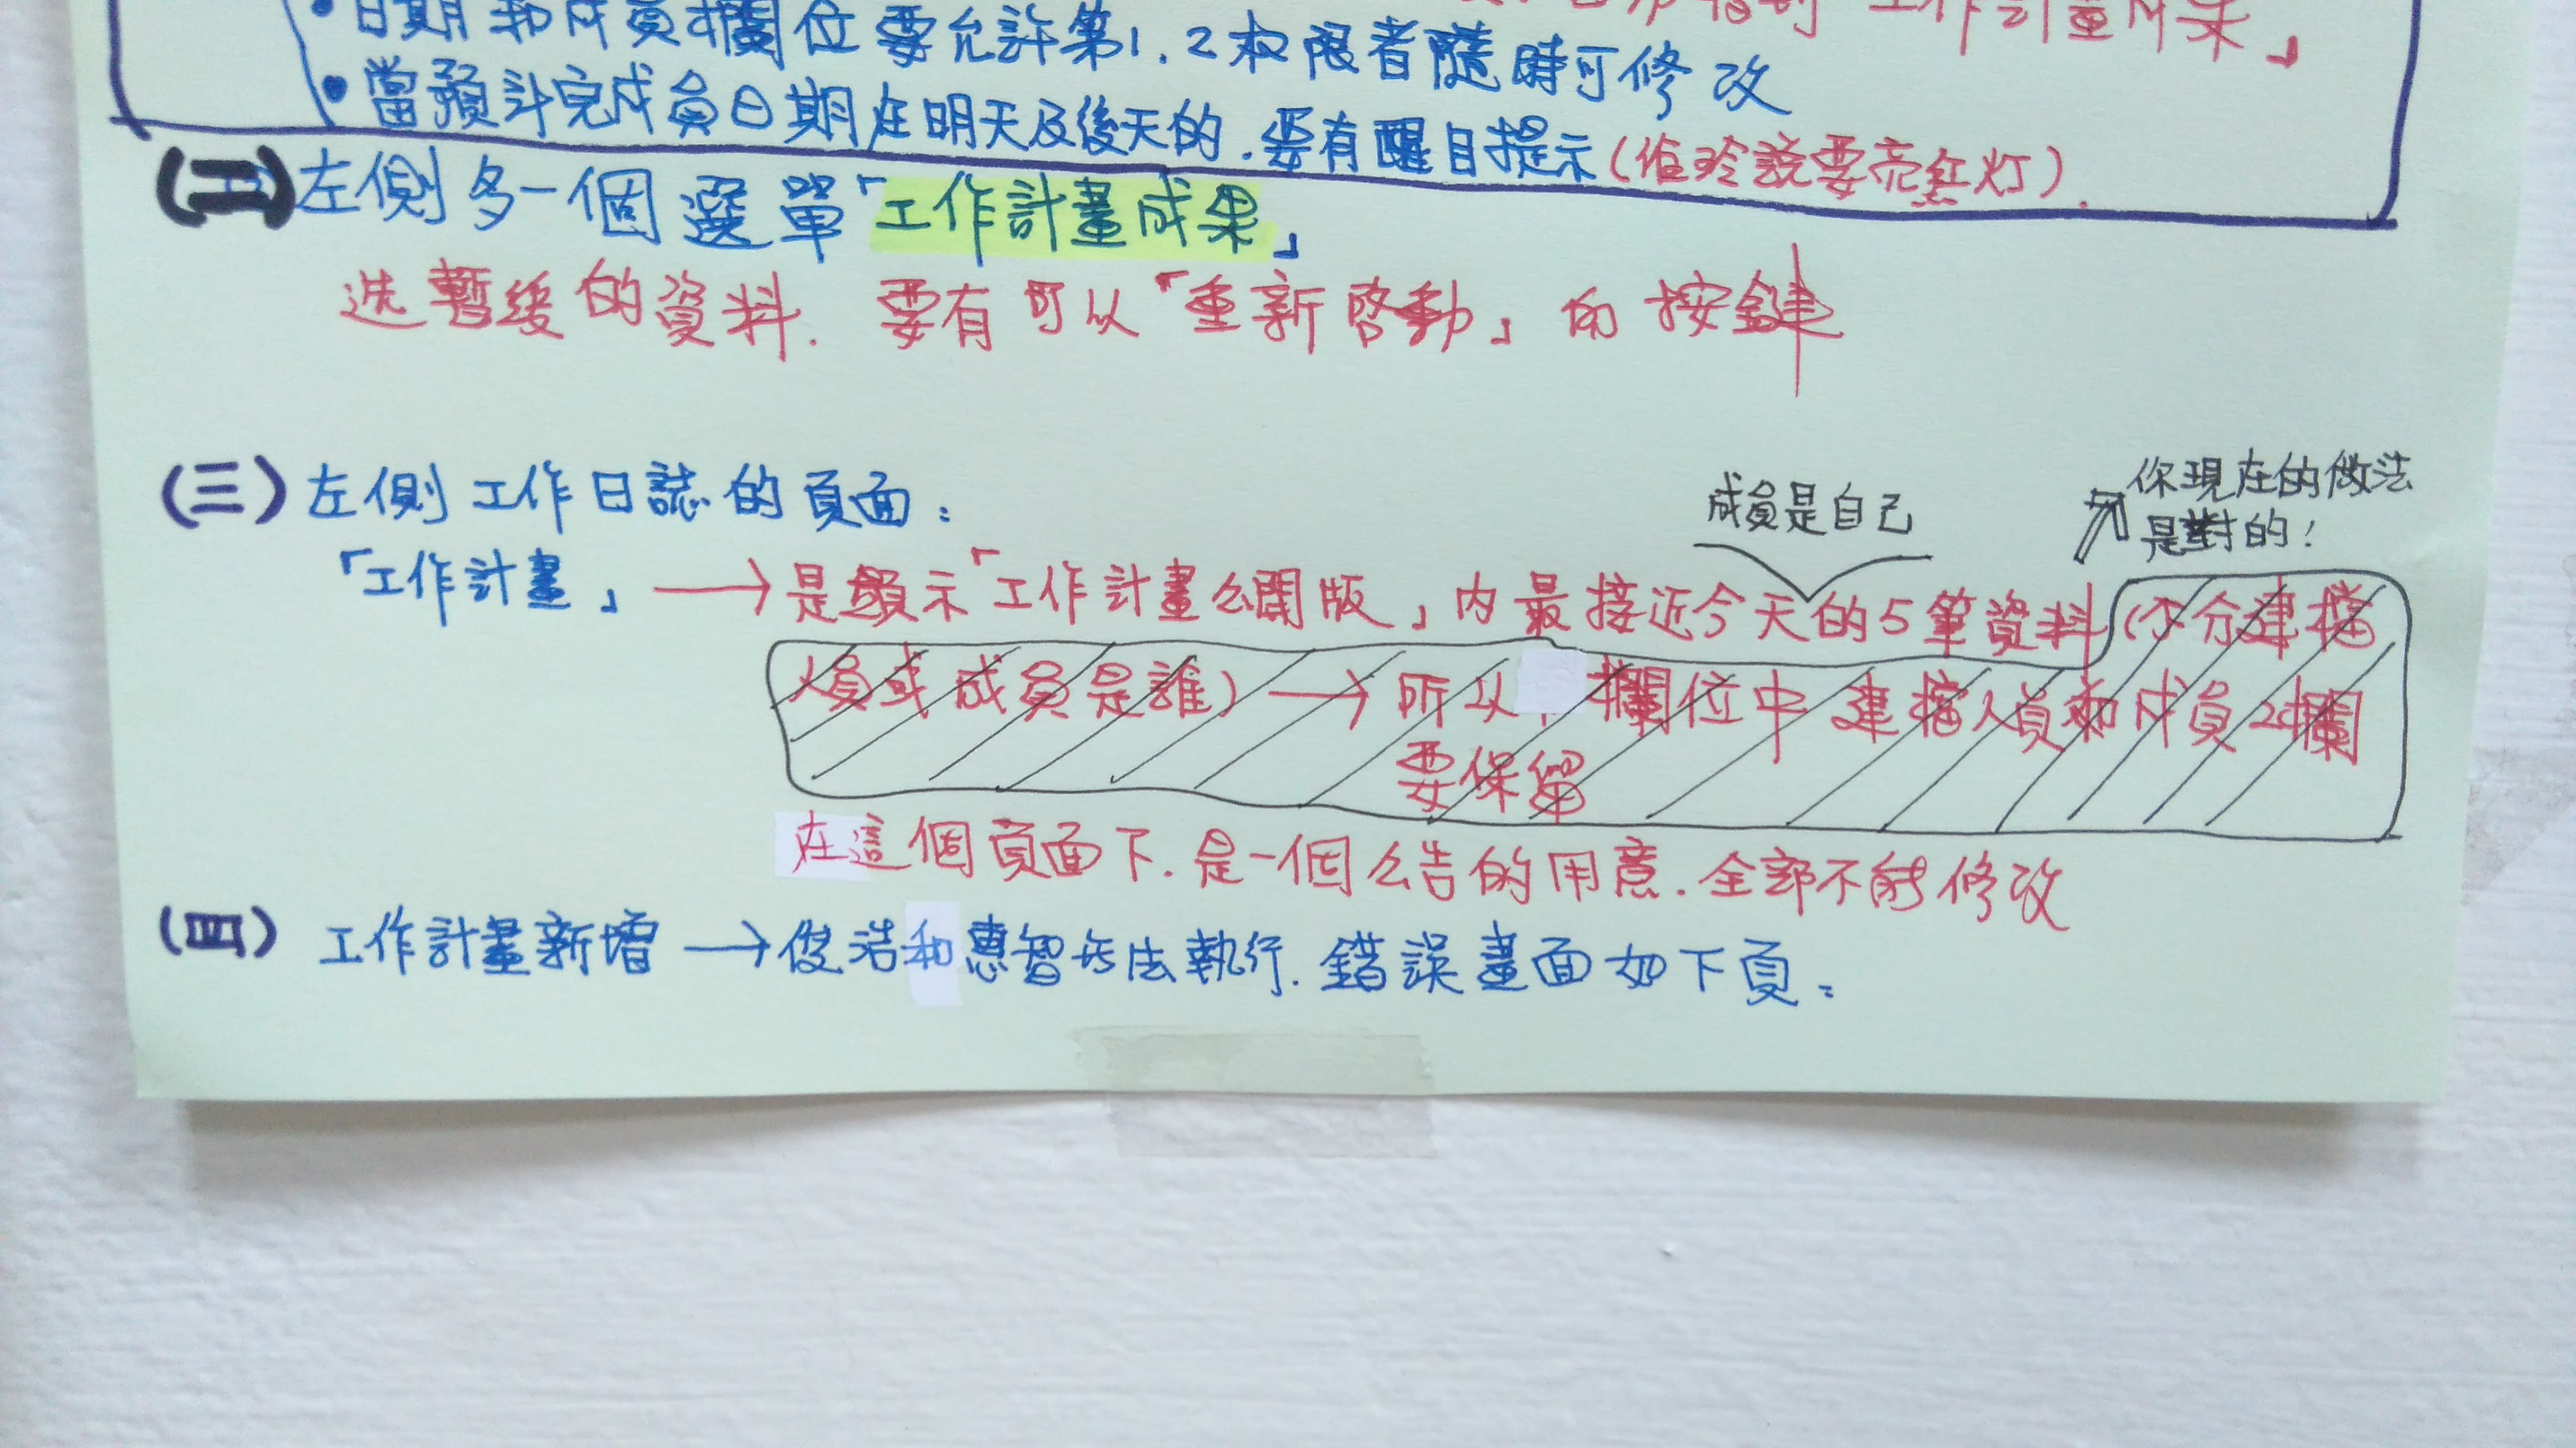 工作計畫成果」
• 日期和成員欄位要允許第1.2權限者隨時可修改
• 當預計完成員日期在明天及後天的.要有醒目提示(佳玲說要亮紅灯).
(二)左側多一個選單「工作計畫成果」
选暫緩的資料.要有可以「重新啓動」的按鍵
(三)左側工作日誌的頁面:
成員是自己
你現在的做法
是對的!
「工作計畫」→是顯示「工作計畫公開版」內最接近今天的5筆資料(不分建檔
人員或成員是誰)→所以,欄位中建檔人員和成員2欄
要保留
在這個頁面下.是一個公告的用意.全部不能修改
(四)工作計畫新增→俊浩和惠智无法執行.錯誤畫面如下頁: